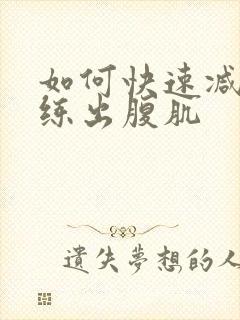 如何快速减
练出腹肌
遗失夢想的人